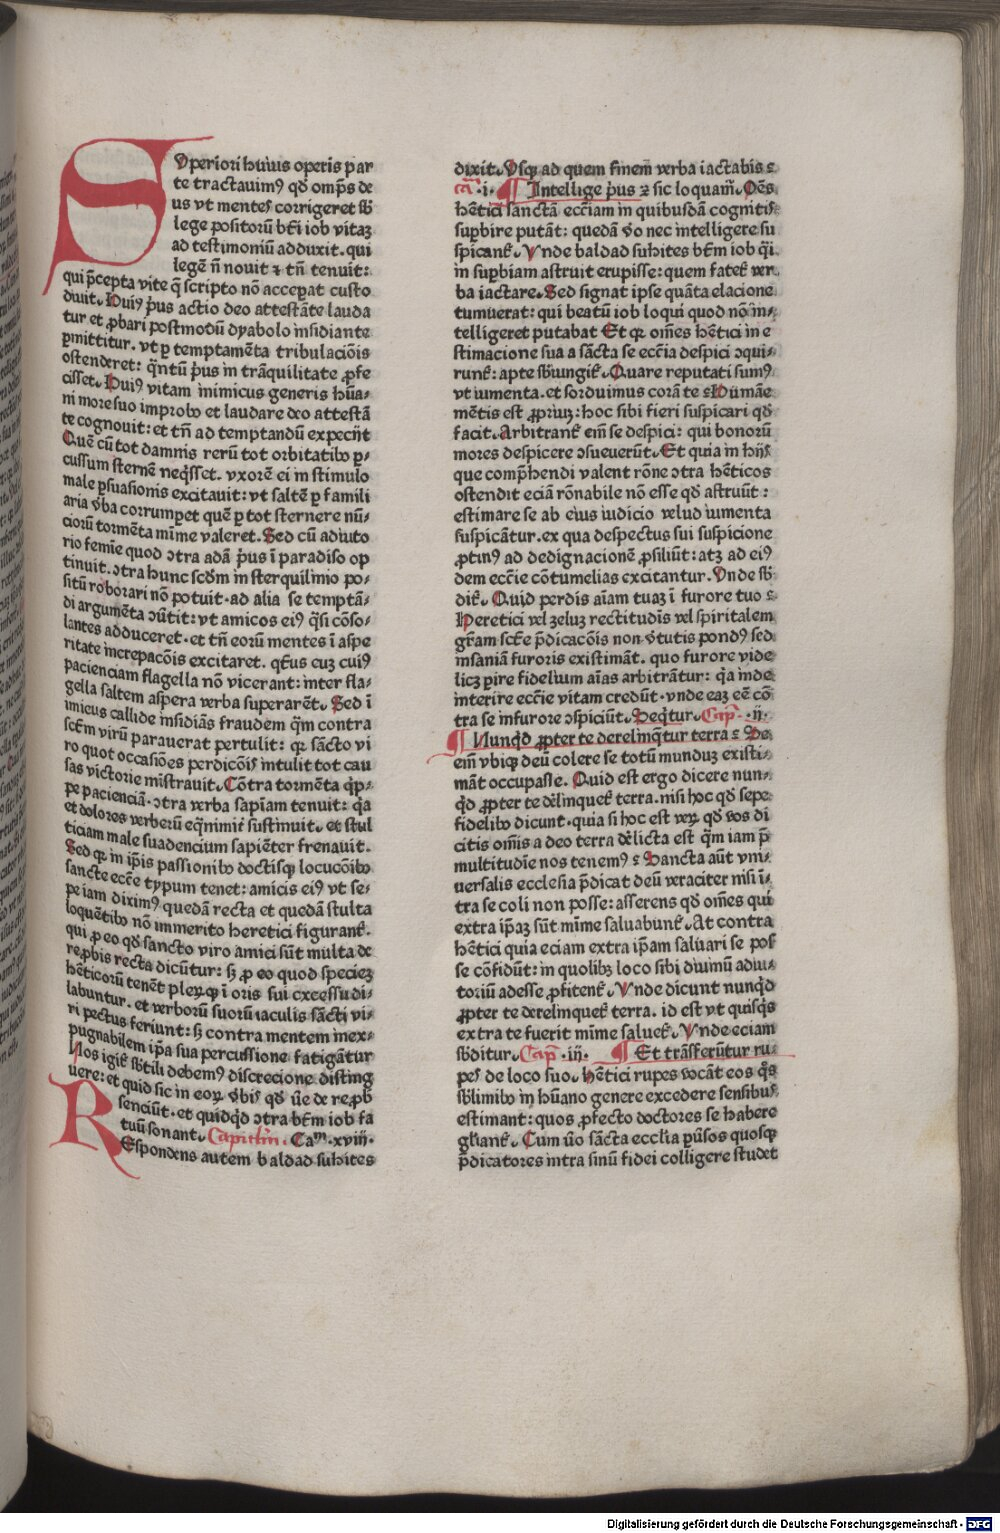 Superiori huius operis par
te tractauimꝰ qđ omp̄s de
us vt mentes corrigeret sb̄
lege positorū bt̄i iob vitaꝫ
ad testimoniū adduxit. qui
legē n̄ nouit ⁊ tn̄ tenuit:
qui p̄cepta vite q̄ scripto nō acceꝑat custo
diuit. Huiꝰ p̄us actio deo attestāte lauda
tur et ꝓbari postmodū dyabolo insidiante
ꝑmittitur. vt ꝑ temptamēta tribulacōis
ostenderet: q̄ntū p̄us in trāquilitate ꝓfe
cisset. Huiꝰ vitam inimicus generis hūa⸗
ni more suo improbo et laudare deo attestā
te cognouit: et tn̄ ad temptandū expecijt
Quē cū tot damnis rerū tot orbitatibꝰ ꝑ⸗
cussum sternē neq̄sset. vxorē ei in stimulo
male ꝑsuasionis excitauit: vt saltē ꝑ famili
aria v̄ba corrumꝑet quē ꝑ tot sternere nū⸗
ciorū tormēta mīme valeret. Sed cū adiuto
rio femīe quod ↄtra adā p̄us ī paradiso op
tinuit. ↄtra hunc scdm̄ in sterquilinio po⸗
sitū roborari nō potuit. ad alia se temptā⸗
di argumēta ↄūtit: vt amicos eiꝰ q̄si cōso⸗
lantes adduceret. et tn̄ eorū mentes ī aspe
ritate increpacōis excitaret. qt̄us cuꝫ cuiꝰ
pacienciam flagella nō vicerant: inter fla⸗
gella saltem aspera verba superarēt. Sed ī
imicus callide insidiās fraudem q̄m contra
sctm̄ virū parauerat pertulit: qꝛ sācto vi
ro quot occasiōes perdicōis intulit tot cau
sas victorie mīstrauit. Cōtra tormēta q̄p⸗
pe pacienciā. ↄtra verba sapīam tenuit: q̄a
et dolores verberū eq̄nimit̄ sustinuit. et stul
ticiam male suadencium sapiēter frenauit.
Sed qꝛ in ip̄is passionibꝰ doctisqꝫ locucōibꝰ
sancte ecc̄e typum tenet: amicis eiꝰ vt se⸗
pe iam diximꝰ quedā recta et quedā stulta
loquētibꝰ nō immerito heretici figurant̄.
qui ꝓ eo qđ sancto viro amici sūt multa de
reꝓbis recta dicūtur: sꝫ ꝓ eo quod specieꝫ
hēticorū tenēt pleꝝqꝫ ī oris sui excessu di⸗
labuntur. et verborū suorū iaculis sācti vi⸗
ri pectus feriunt: sꝫ contra mentem inex⸗
pugnabilem ip̄a sua percussione fatigātur
Nos igit̄ sb̄tili debemꝰ discrecione disting
uere: et quid sic in eoꝝ v̄bis qđ ūe de reꝓb
senciūt. et quidqđ ↄtra bt̄m iob fa
tuū sonant. Capitlm̄. Cam̄. xviij.
Respondens autem baldad suhites
dixit. Vsqꝫ ad quem finem verba iactabis ⁊
ca. i. ¶ Intellige p̄us ⁊ sic loquam̄. Oēs
hētici sanctā ecc̄iam in quibusdā cognitis
suꝑbire putāt: quedā v̄o nec intelligere su
spicant̄. Vnde baldad suhites bt̄m iob q̄i
in suꝑbiam astruit erupisse: quem fatet̄ ver
ba iactare. Sed signat ipse quāta elacione
tumuerat: qui beatū iob loqui quod nō in⸗
telligeret putabat Et qꝛ om̄es hētici in e
stimacione sua a sācta se ecc̄ia despici ↄqui⸗
runt̄: apte sb̄iungit̄. Quare reputati sumꝰ
vt iumenta. et sorduimus corā te ⁊ Humāe
mētis est ꝓpriuꝫ: hoc sibi fieri suspicari qđ
facit. Arbitrant̄ em̄ se despici: qui bonorū
mores despicere ↄsueuerūt. Et quia in hijs
que comp̄hendi valent rōne ↄtra hēticos
ostendit eciā rōnabile nō esse qđ astruūt:
estimare se ab eius iudicio velud iumenta
suspicātur. ex qua despectus sui suspicione
ꝓtinꝰ ad dedignacionē ꝓsiliūt: atꝫ ad eiꝰ
dem ecc̄ie cōtumelias excitantur. Vnde sb̄
dit̄. Quid perdis aīam tuaꝫ ī furore tuo ⁊
Heretici vel ʒeluꝫ rectitudīs vel spiritalem
gr̄am scte p̄dicacōis non v̄tutis pondꝰ sed
insaniā furoris existimāt. quo furore vide
licꝫ ꝑire fidelium aīas arbitrātur: q̄a inde
interire ecc̄ie vitam credūt. vnde eaꝫ eē cō
tra se in furore ↄspiciūt. Seq̄tur. Cap̄. ij.
¶ Nunqđ ꝓpter te derelinq̄tur terra ⁊ De
eim̄ vbiqꝫ deū colere se totū munduꝫ existi⸗
māt occupasse. Quid est ergo dicere nun⸗
qđ ꝓpter te de̅linquet̄ terra. nisi hoc qđ sepe
fidelibꝰ dicunt. quia si hoc est veꝝ qđ vos di
citis om̄is a deo terra de̅licta est q̄m iam p̄
multitudīe nos tenemꝰ ⁊ Sancta aūt vni⸗
uersalis ecclesia p̄dicat deū veraciter nisi ī⸗
tra se coli non posse: asserens qđ om̄es qui
extra ip̄aꝫ sūt mīme saluabunt̄. At contra
hētici quia eciam extra ip̄am saluari se pos
se cōfidūt: in quolibꝫ loco sibi diuinū adiu⸗
toriū adesse ꝓfitent̄. Vnde dicunt nunqđ
ꝓpter te derelinquet̄ terra. id est vt quisq̄s
extra te fuerit mīme saluet̄. Vnde eciam
sb̄ditur. Cap̄. iij. ¶ Et trāsferūtur ru⸗
pes de loco suo. hētici rupes vocāt eos q̄s
sb̄limibꝰ in hūano genere excedere sensibus
estimant: quos ꝓfecto doctores se habere
gl̄iant̄. Cum v̄o sācta ecclia ꝑūsos quosqꝫ
p̄dicatores intra sinū fidei colligere studet
Digitalisierung gefördert durch die Deutsche Forschungsgemeinschaft - DFG